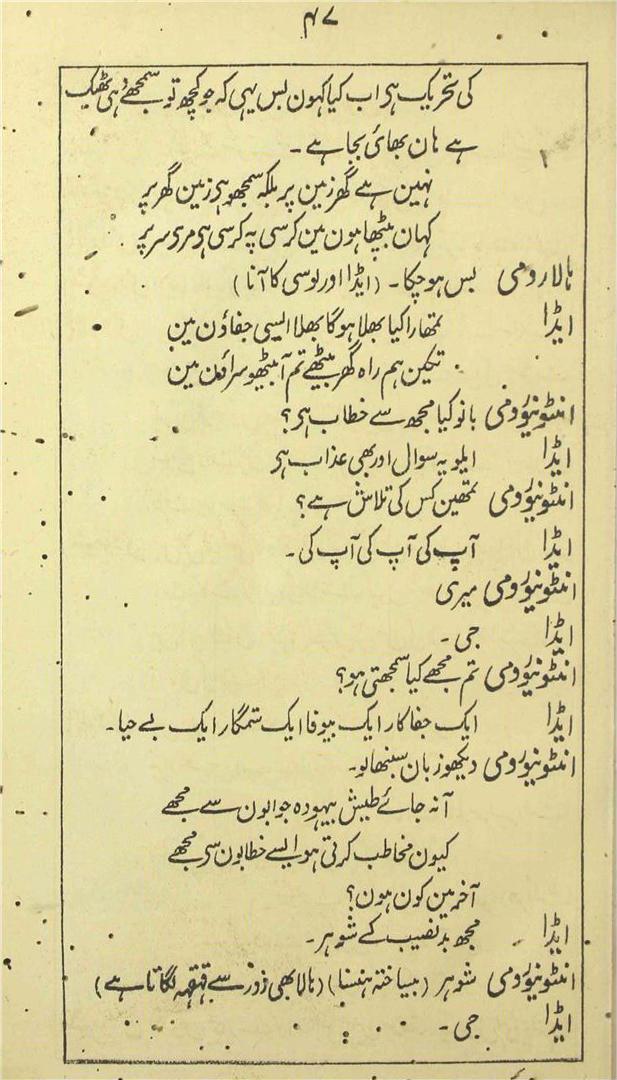 ۴۷
کی تحریک ہی اب کیا کہون بس یہی کہ جو کچھ تو سمجھے وہی ٹھیک
ہے ہان بھائی بجا ہے ۔
نہین ہے گھر زمین پر بلکہ سمجھو ہی زمین گھر پر
کہان بیٹھا ہون مین کرسی پہ کرسی ہی مری سر پر
ہالارومی بس ہوچکا ۔ (ایڈا اور لوسی کا آنا)
ایڈا تمھارا کیا بھلا ہوگا بھلا ایسی جفاؤن مین
تکین ہم راہ گھر بیٹھے تم آ بیٹھو سراؤن مین
انٹونیؤرومی بانو کیا مجھ سے خطاب ہی؟
ایڈا ایلو یہ سوال اور بھی عذاب ہی
انٹونیؤرومی تمھین کس کی تلاش ہے؟
ایڈا آپ کی آپ کی آپ کی ۔
انٹونیؤرومی میری
ایڈا جی ۔
انٹونیؤرومی تم مجھے کیا سمجھتی ہو؟
ایڈا ایک جفاکار ایک بیوفا ایک ستمگار ایک بے حیا ۔
انٹونیؤرومی دیکھو زبان سنبھالو ۔
آنہ جائے طیش بیہودہ جوابون سے مجھے
کیون مخاطب کرتی ہو ایسے خطابون سی مجھے
آخر مین کون ہون؟
ایڈا مجھ بدنصیب کے شوہر ۔
انٹونیؤرومی شوہر (بیساختہ ہنسنا) (ہالا بھی زور سے قہقہہ لگاتا ہے)
ایڈا جی ۔